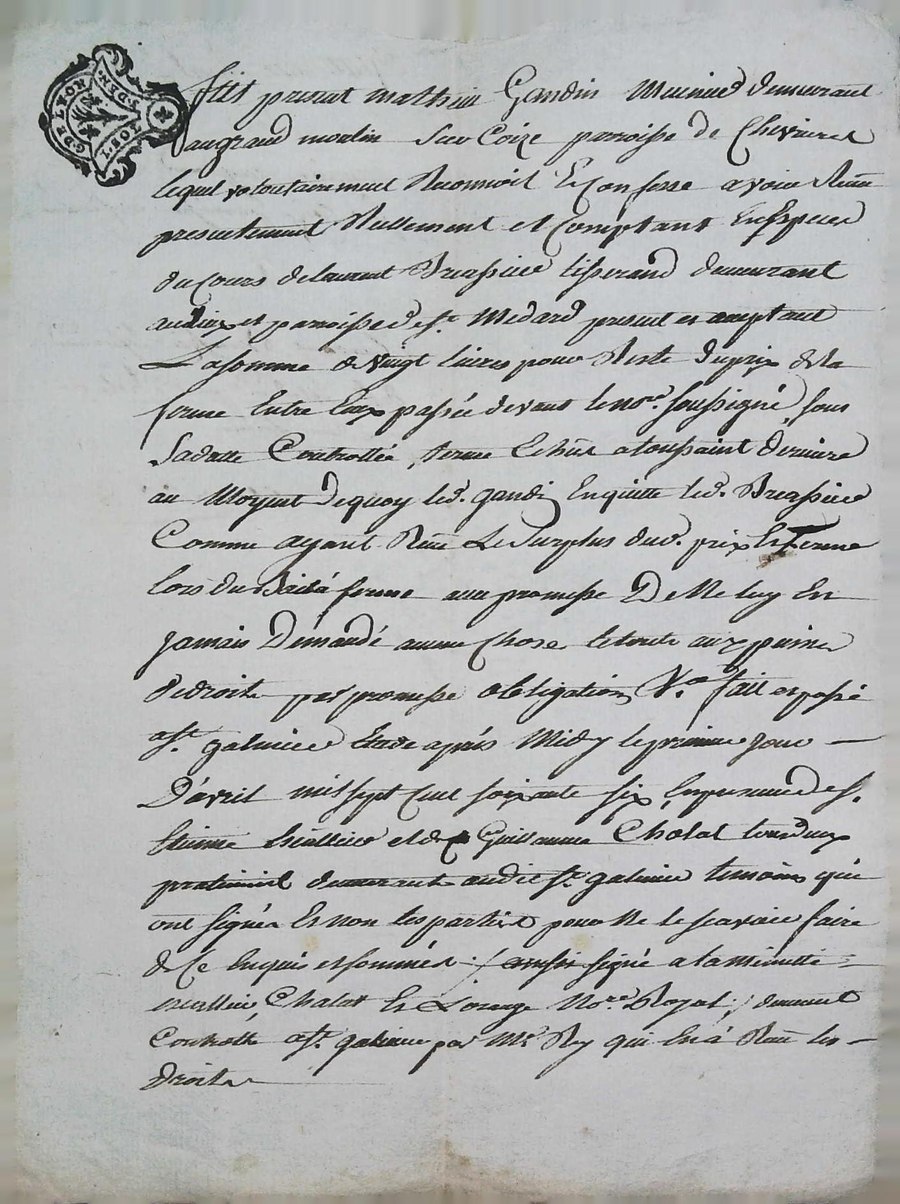 GP DE LYON
fut present mathieu Gandin Meunier demeurant
au grand moulin sur Coize parroisse de Chevrieres
lequel volontairement Reconnoit Et Confesse avoir Receu
presentement Reellement et Comptant En Especes
du Cours de laurent Bressieu tisserand demeurant
audit et parroisse de St. Medard present et acceptant
La somme de Vingt livres pour Reste du prix de la
ferme Entre Eux passée devant le nore. soussigné, sous
Sa datte Controllée, terme Echue a toussaint derniere
au Moyent de quoy led. gandin En quitte led. Bressieu
Comme ayant Receu Le Surplus dud. prix En ferme
lors du ferme avec promesse De Ne luy En
jamais Demandé aucune Chose le toute aux peines
de droits par promesse obligation, Va. fait et passé
a St. galmier Etude après Midy le premier Jour
D'avril mil sept Cent soixante six, En presence de s.
Etienne et de Guillaume Cholat tous deux
praticiens demeurants audit St. galmier temoins qui
ont signés Et non les parties pour Ne le sçavoir faire
de Ce Enquis et sommés :/ signé a la minutte
Chalat Et Nore. Royal :/ duement
Controllé a St. galmier par Mr. Rey qui En à Receu les
droits